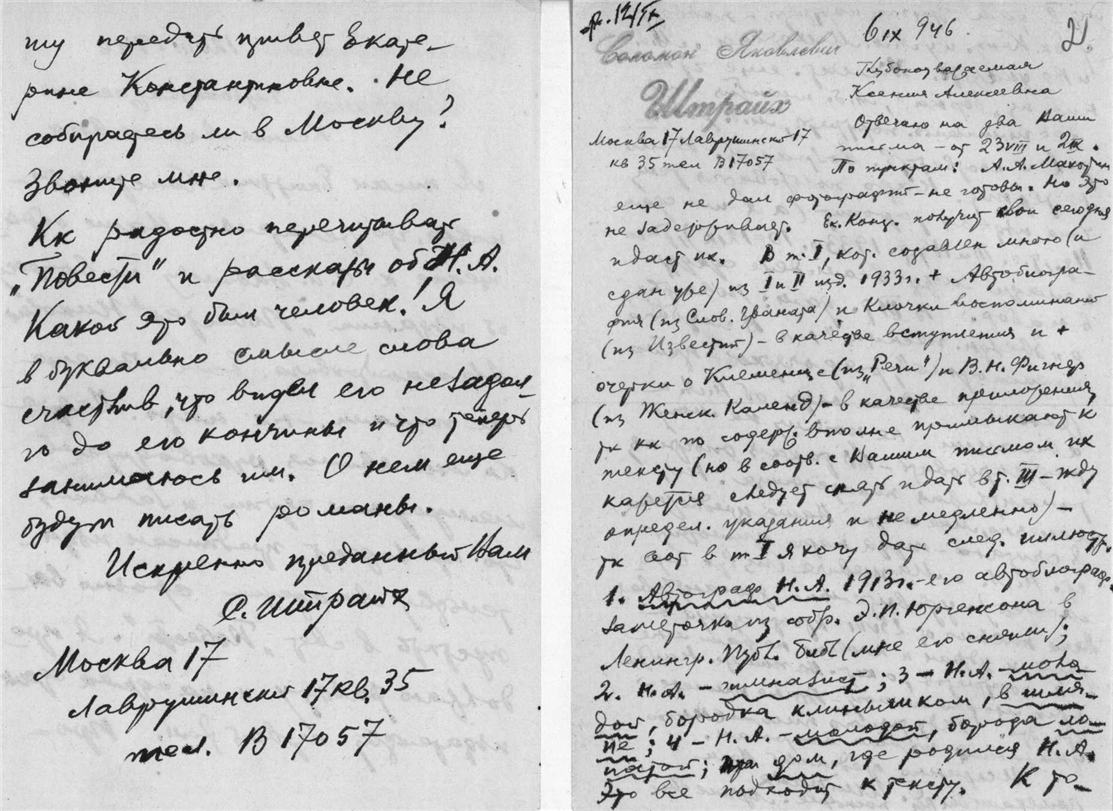 ту передать привет Екате-
рине Константиновне. Не
собираетесь ли в Москву?
Звоните мне.
Кк радостно перечитывать
"Повести" и рассказы об Н.А.
Какой это был человек! Я
в буквально смысле слова
счастлив, что видел его незадол-
го до его кончины и что теперь
занимаюсь им. О нем еще
будут писать романы.
Искренно преданный Вам
С. Штрайх
Москва 17
Лаврушинский 17 кв. 35
тел. В 17057
6 IX 946.
21.
Соломон Яковлевич
Штрайх
Москва 17 Лаврушинский 17
кв 35 тел В17057
Глубокоуважаемая
Ксения Алексеевна
Отвечаю на два Ваши
письма – от 23 VIII и 2 IX.
По пунктам: А.А.
еще не дал фотографий – не готовы. Но это
не задерживает. Ек. Конст. получит свои сегодня
и даст их. В т. I, кот. составлен мною (и
сдан уже) из I и II изд. 1933 г. + Автобиогра-
фия (из Слов. Граната) и Клочки воспоминаний
(из Известий) – в качестве вступления и +
очерки о Клеменце (из "Речи") и В.Н. Фигнер
(из Женск. Календ) – в качестве приложения
тк кк по содерж вполне примыкают к
тексту (но в соотв. с Вашим письмом их
кажется следует снять и дать в т. III – жду
определ. указания и немедленно) –
тк вот в т I я хочу дать след. иллюстр.
1. Автограф Н.А. 1913 г. – его автобиограф.
заметочка из собр. Э.П. Юргенсона в
Ленингр. Публ. библ (мне его сняли);
2. Н.А. – гимназист; 3 – Н.А. – моло
дой, бородка клинышком, в шля-
пе; 4 – Н.А. – молодой, борода ло-
патой; дом, где родился Н.А.
Это все подходит к тексту. К то-